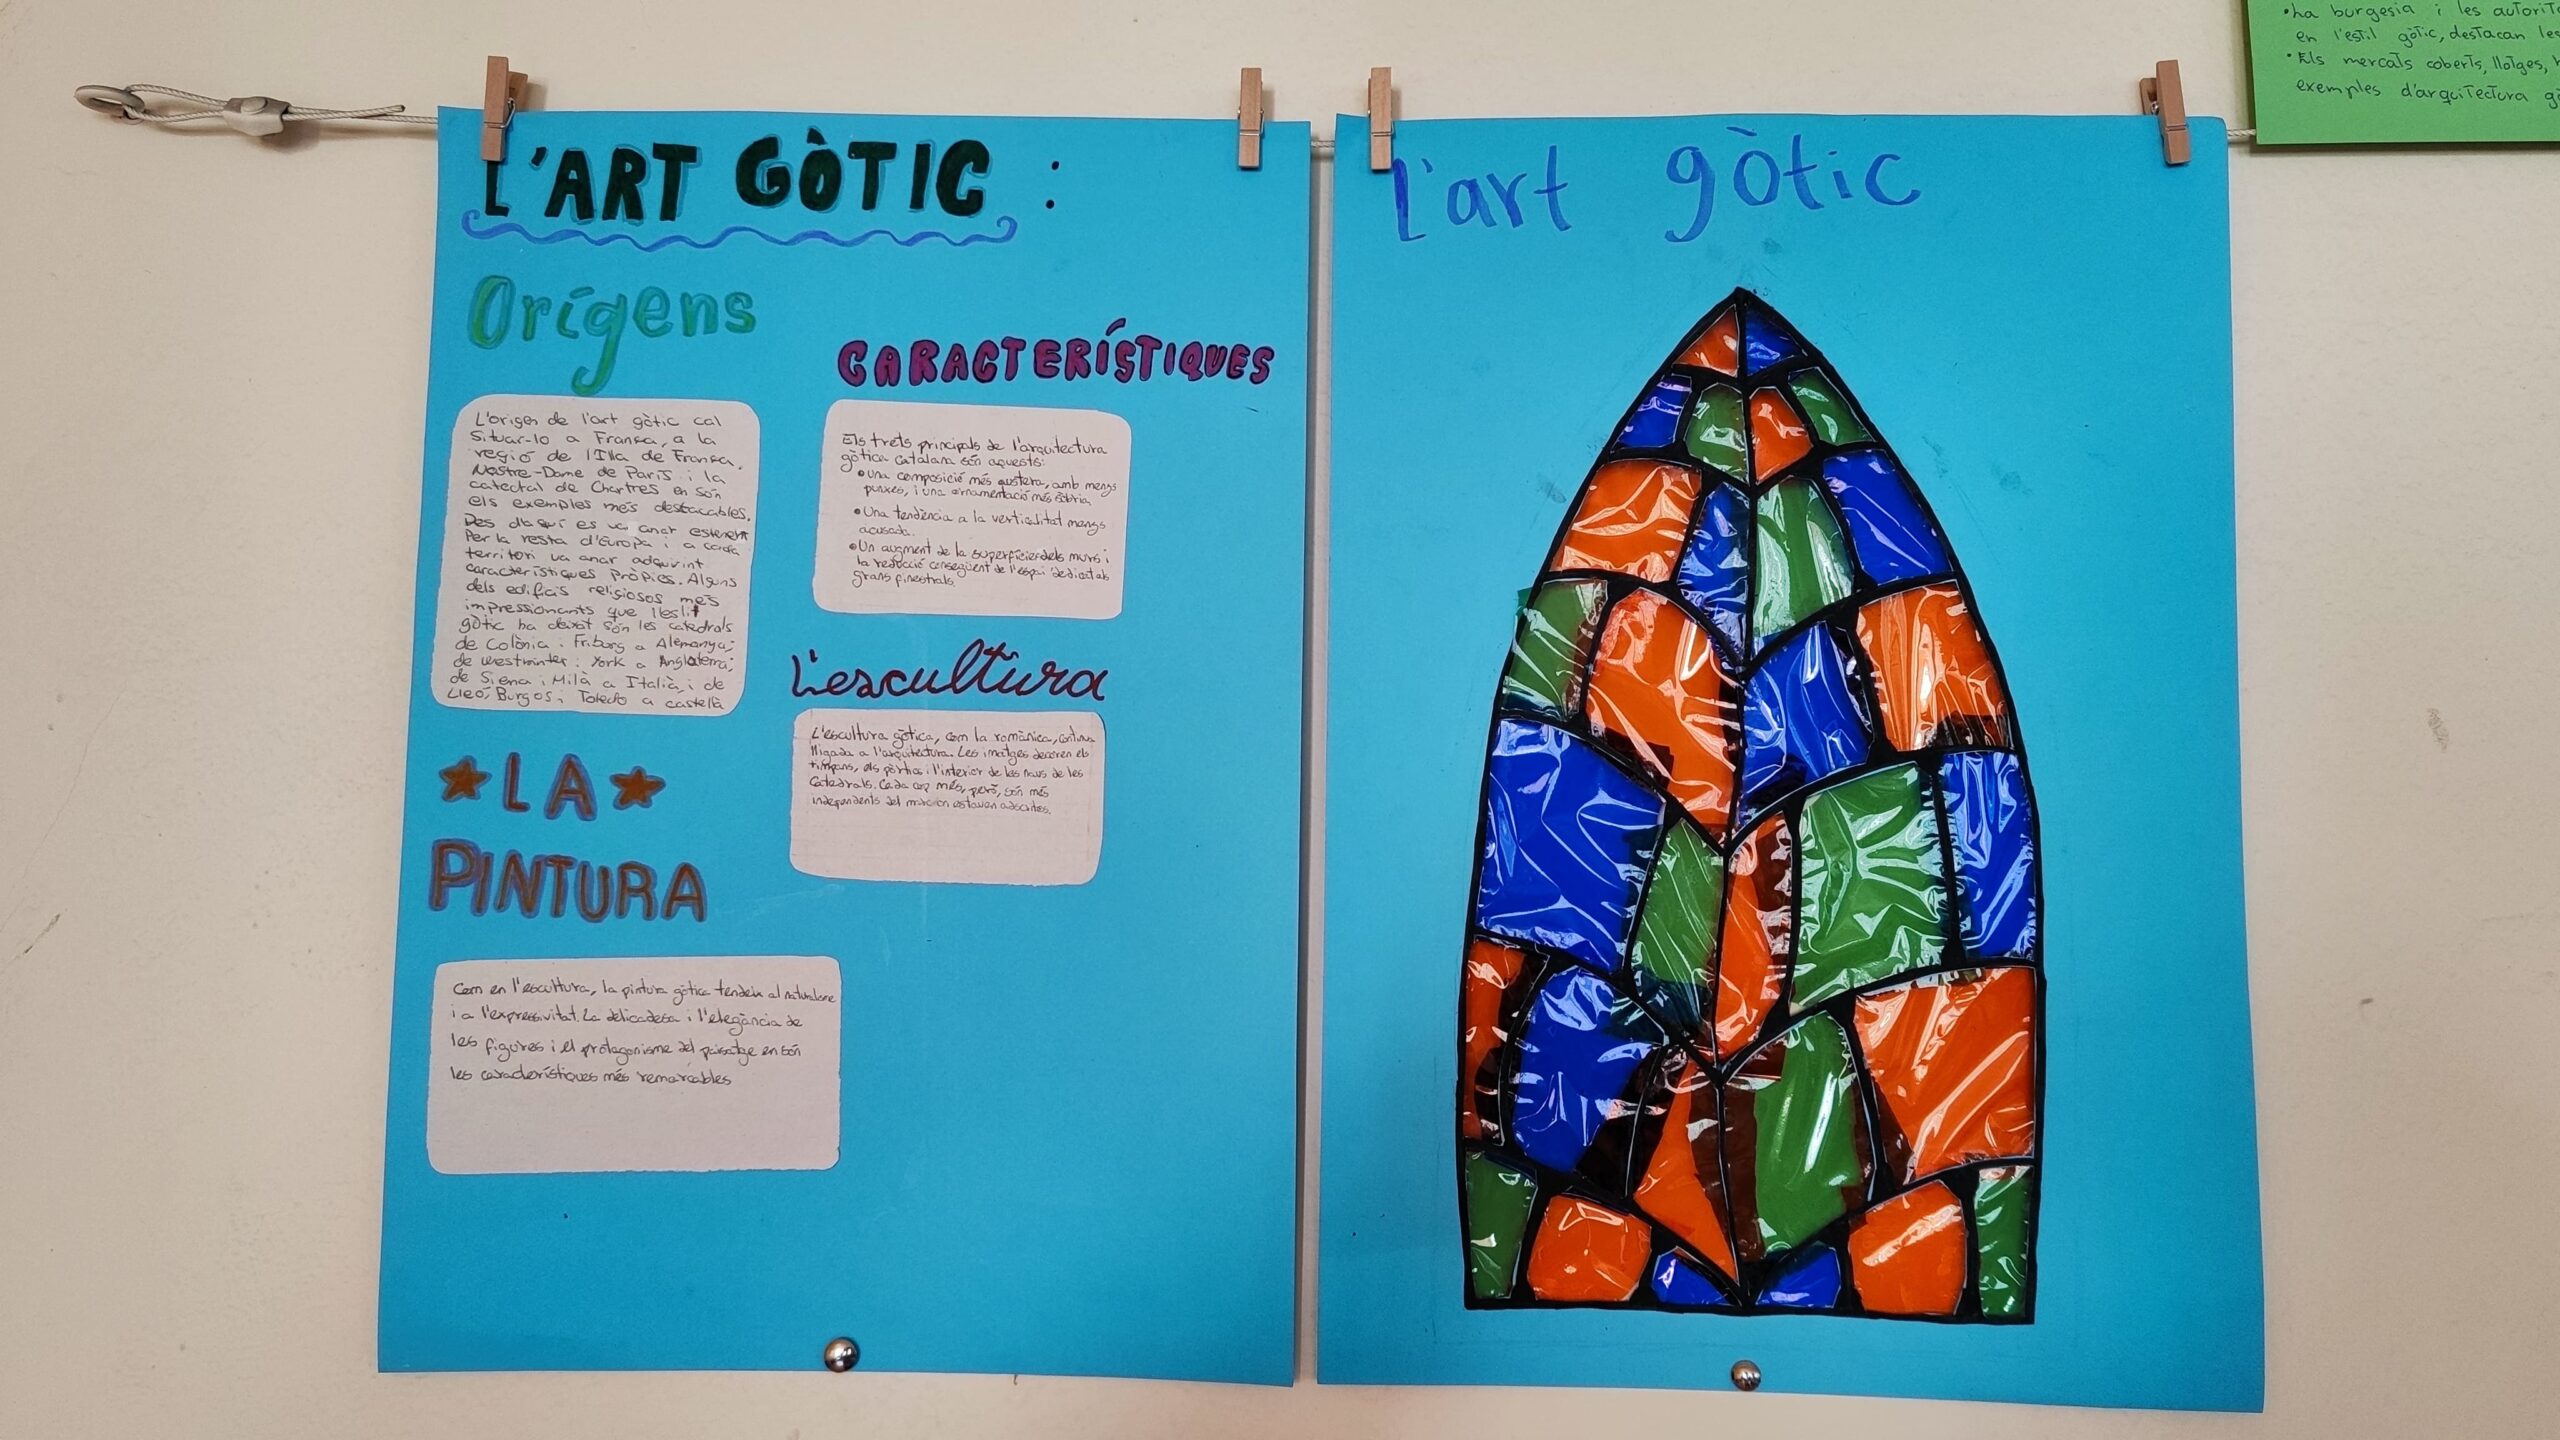 L'ART GÒTIC :
Orígens
L'origen de l'art gòtic cal
situar-lo a França, a la
regió de l'Illa de França.
Nostre-Dame de París i la
catectal de Chartres en són
els exemples més destacables.
Des d'aquí es va anar estenent
Per la resta d'Europa i a cada
territori va anar adquirint
característiques pròpies. Alguns
dels edificis religiosos més
impressionants que l'estil
gòtic ha deixat són les catedrals
de Colònia i Friburg a Alemanya;
de Westminter i York a Anglaterra;
de Siena i Milà a Italià, i de
Lleó, Burgos i Toledo a castellà
CARACTERÍSTIQUES
Els trets principals de l'arquitectura
gòtica catalana són aquests:
•Una composició més austera, amb menys
punxes, i una ornamentació més sòbria
•Una tendència a la verticalitat menys
acusada.
•Un augment de la superfície dels murs i
la reducció consegüent de l'espai dedicat als
grans finestrals.
L'escultura
L'escultura gòtica, com la romànica, continua
lligada a l'arquitectura. Les imatges decoren els
timpans, els pòrtics i l'interior de les naus de les
Catedrals. Cada cop més, però, són més
independents del marc on estaven adscrites.
LA
PINTURA
Com en l'escultura, la pintura gòtica tendeix al naturalisme
i a l'expressivitat. La delicadesa i l'elegància de
les figures i el protagonisme del paisatge en són
les característiques més remarcables
l'art gòtic
•La burgesia i les autorit
en l'estil gòtic, destacan les
•Els mercats coberts, llotges,
exemples d'arquitectura